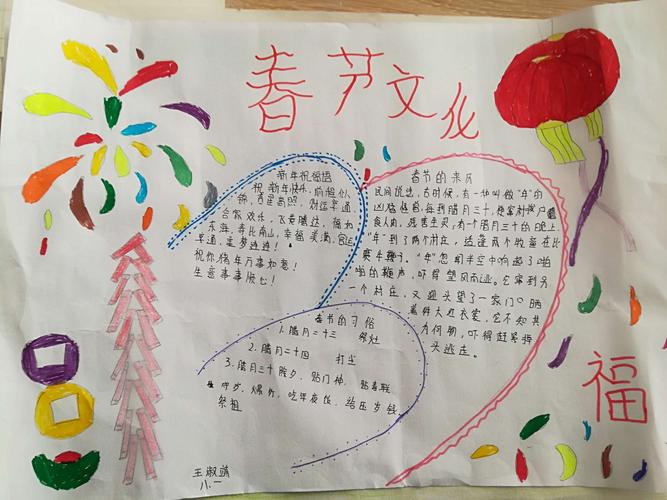 春节文化
新年祝福语
祝新年快乐,前程似
锦,吉星高照,财运亨通,
合家欢乐,飞黄腾达,福如
东海,寿比南山,幸福美满,官运
亨通,美梦连连!
祝你猪年万事如意!
生意事事顺心!
春节的来历
民间说法,古时候,有一种叫做“年”的
凶猛怪兽,每到腊月三十,挨家
食人肉,残害生灵,有一个腊月三十的晚上,
“年”到了两个村庄,适逢两个牧童在比
赛牛鞭子。“年”忽闻半空中响起了啪
啪的鞭声,吓得望风而逃。它窜到另
一个村庄,又迎头望了一家门口晒
着件大红衣裳,它不知其
为何物,吓得赶紧掉
头逃走。
春节的习俗
1.腊月二十三 祭灶
2.腊月二十四 打尘
3.腊月三十除夕,贴门神,贴春联
守岁,爆竹,吃年夜饭,给压岁钱
祭祖
福
王淑
八.一